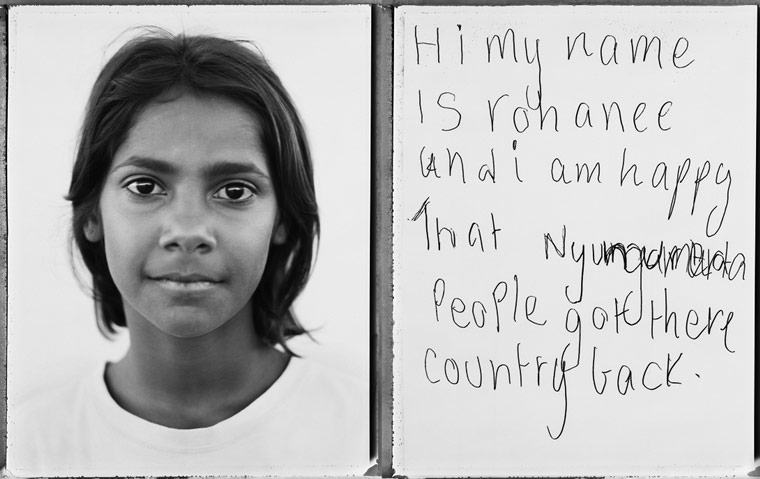 Hi my name
IS rohanee
and i am happy
That Nyungumarta
People gott there
country back.